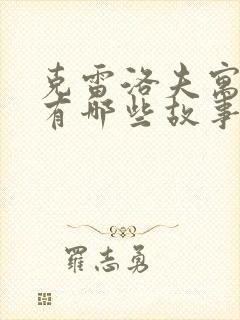 克雷洛夫寓
有哪些故事
羅志勇